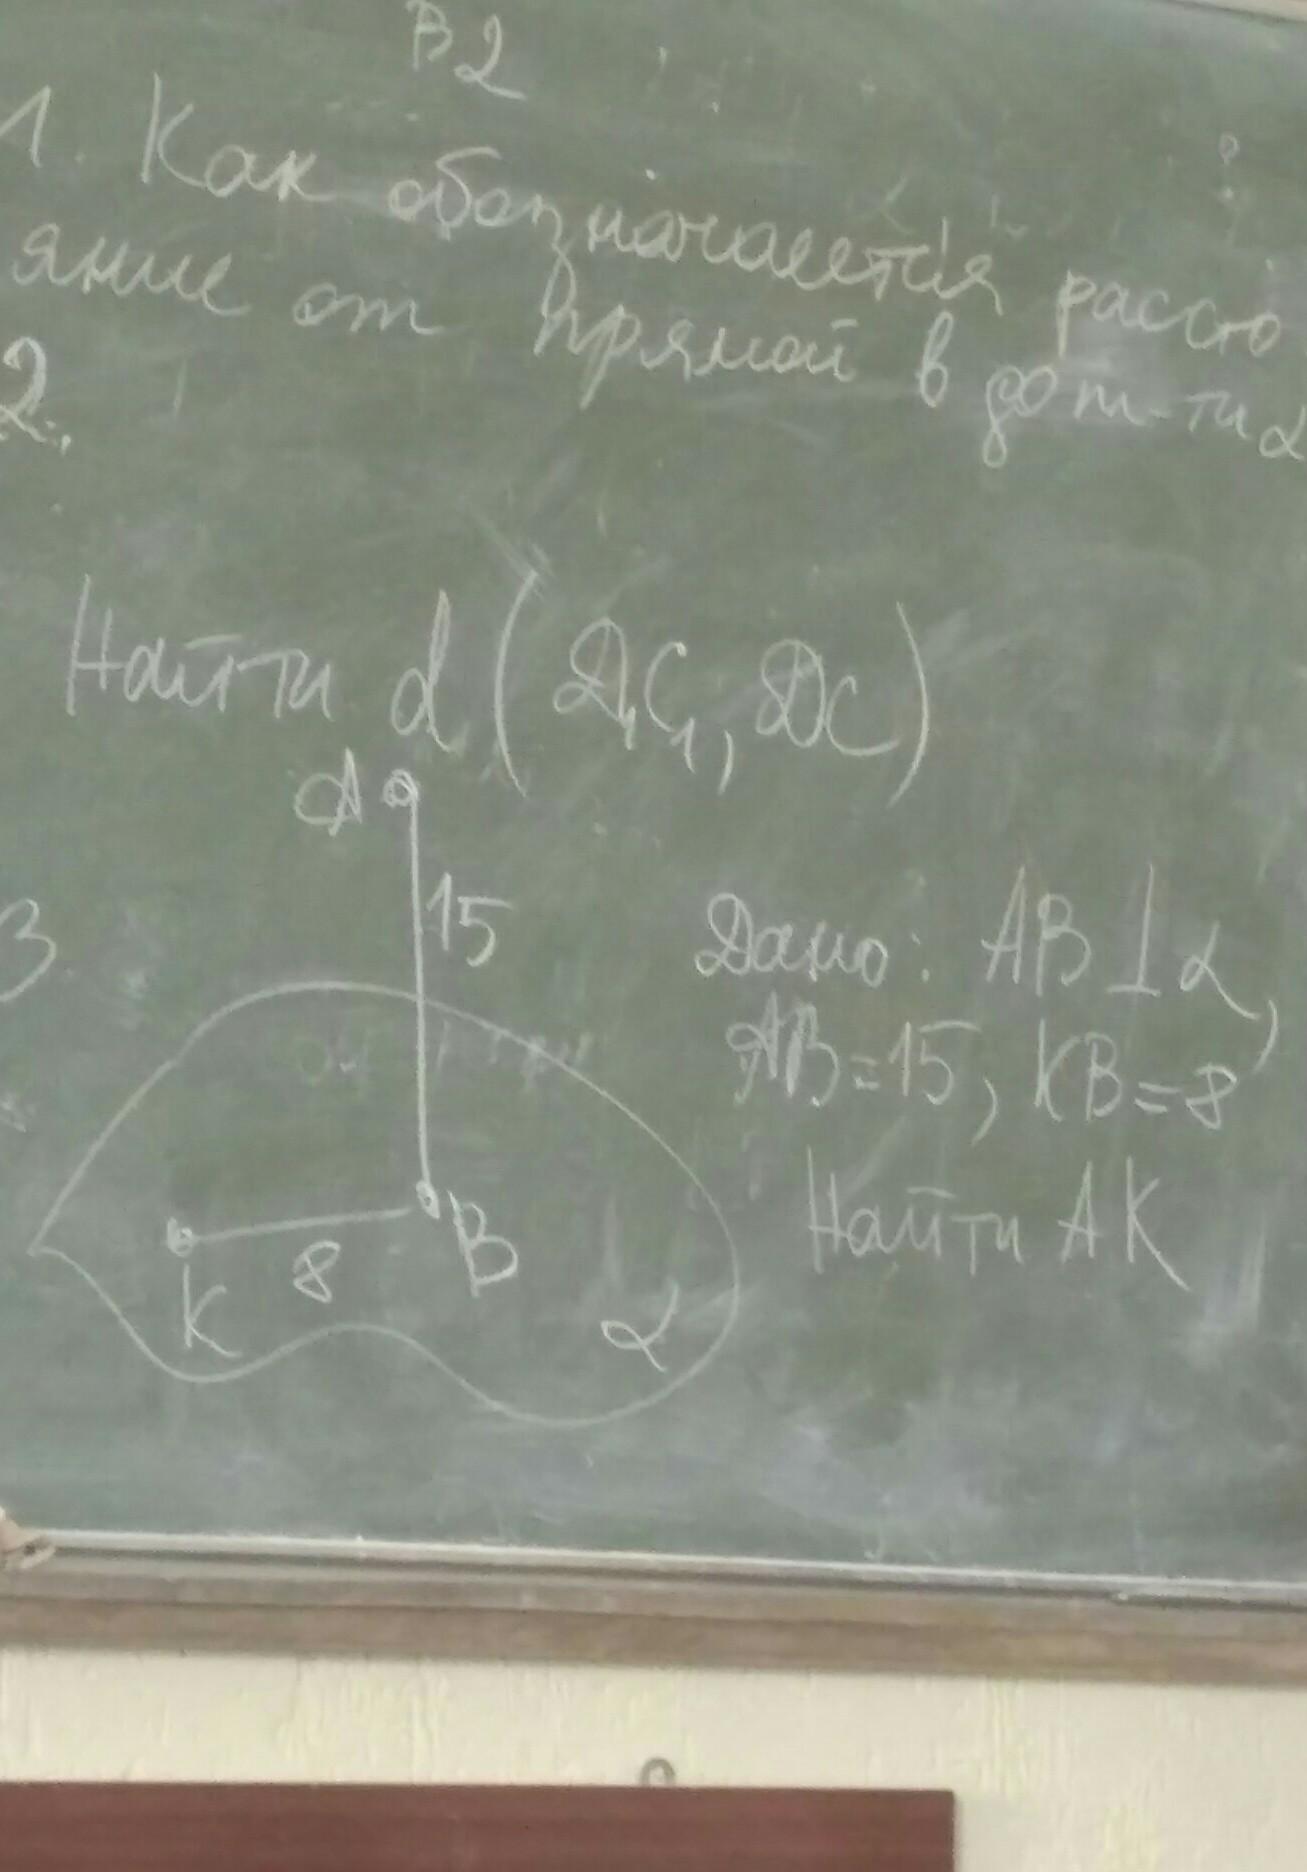 В2
1. Как обозначается рассто
яние от прямой в до пл-ти α
2.
Найти d (D₁C₁, DC)
A
15
3
Дано: AB ⊥ α,
AB = 15, KB = 8
Найти AK
B
8
K
α